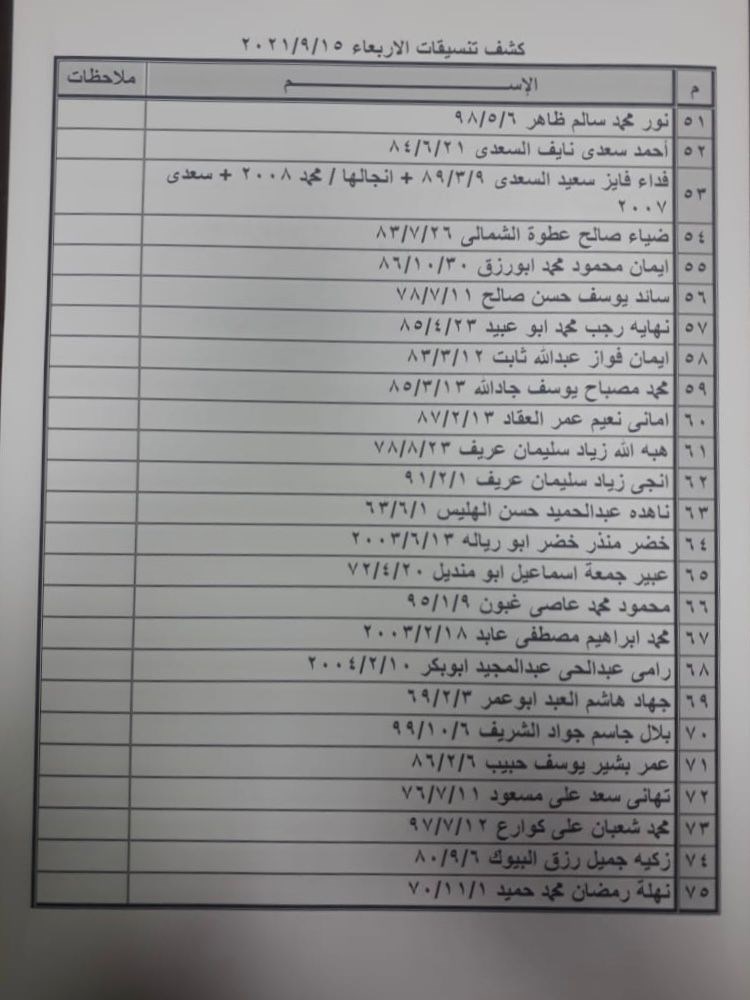 كشف تنسيقات الاربعاء ٢٠٢١/٩/١٥
م الإســـــــم ملاحظات
٥١ نور محمد سالم ظاهر ٩٨/٥/٦
٥٢ أحمد سعدى نايف السعدى ٨٤/٦/٢١
٥٣ فداء فايز سعيد السعدى ٨٩/٣/٩ + انجالها / محمد ٢٠٠٨ + سعدى
٢٠٠٧
٥٤ ضياء صالح عطوة الشمالى ٨٣/٧/٢٦
٥٥ ايمان محمود محمد ابورزق ٨٦/١٠/٣٠
٥٦ سائد يوسف حسن صالح ٧٨/٧/١١
٥٧ نهايه رجب محمد ابو عبيد ٨٥/٤/٢٣
٥٨ ايمان فواز عبدالله ثابت ٨٣/٣/١٢
٥٩ محمد مصباح يوسف جادالله ٨٥/٣/١٣
٦٠ امانى نعيم عمر العقاد ٨٧/٢/١٣
٦١ هبه الله زياد سليمان عريف ٧٨/٨/٢٣
٦٢ انجى زياد سليمان عريف ٩١/٢/١
٦٣ ناهده عبدالحميد حسن الهليس ٦٣/٦/١
٦٤ خضر منذر خضر ابو رياله ٢٠٠٣/٦/١٣
٦٥ عبير جمعة اسماعيل ابو منديل ٧٢/٤/٢٠
٦٦ محمود محمد عاصى غبون ٩٥/١/٩
٦٧ محمد ابراهيم مصطفى عابد ٢٠٠٣/٢/١٨
٦٨ رامى عبدالحى عبدالمجيد ابوبكر ٢٠٠٤/٢/١٠
٦٩ جهاد هاشم العبد ابوعمر ٦٩/٢/٣
٧٠ بلال جاسم جواد الشريف ٩٩/١٠/٦
٧١ عمر بشير يوسف حبيب ٨٦/٢/٦
٧٢ تهانى سعد على مسعود ٧٦/٧/١١
٧٣ محمد شعبان على كوارع ٩٧/٧/١٢
٧٤ زكيه جميل رزق البيوك ٨٠/٩/٦
٧٥ نهلة رمضان محمد حميد ٧٠/١١/١